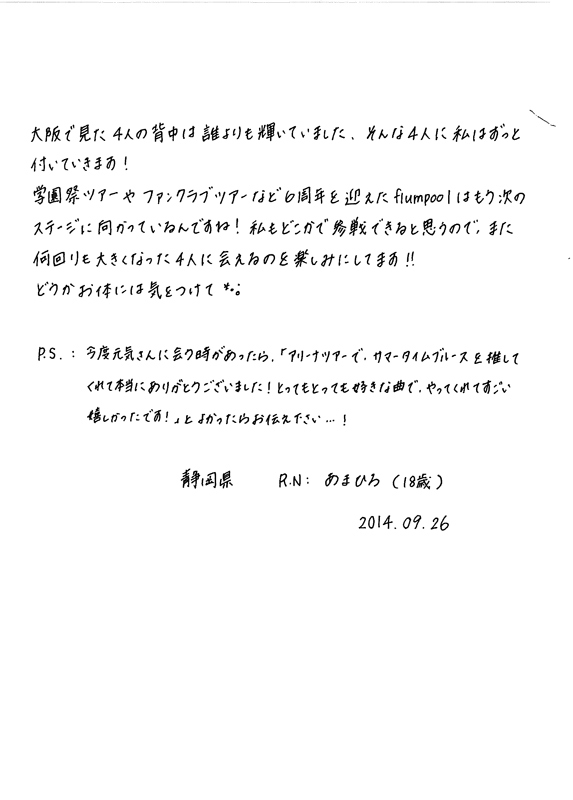 大阪で見た4人の背中は誰よりも輝いていました、そんな4人に私はずっと
付いていきます!
学園祭ツアーやファンクラブツアーなど6周年を迎えたflumpoolはもう次の
ステージに向かっているんですね!私もどこかで参戦できると思うので、また
何回りも大きくなった4人に会えるのを楽しみにしてます!!
どうかお体には気をつけて *。。
P.S. : 今度元気さんに会う時があったら、「アリーナツアーで、サマータイムブルースを推して
くれて本当にありがとうございました!とってもとっても好きな曲で、やってくれてすごい
嬉しかったです!」とよかったらお伝え下さい…!
静岡県 R.N: あまひろ (18歳)
2014.09.26